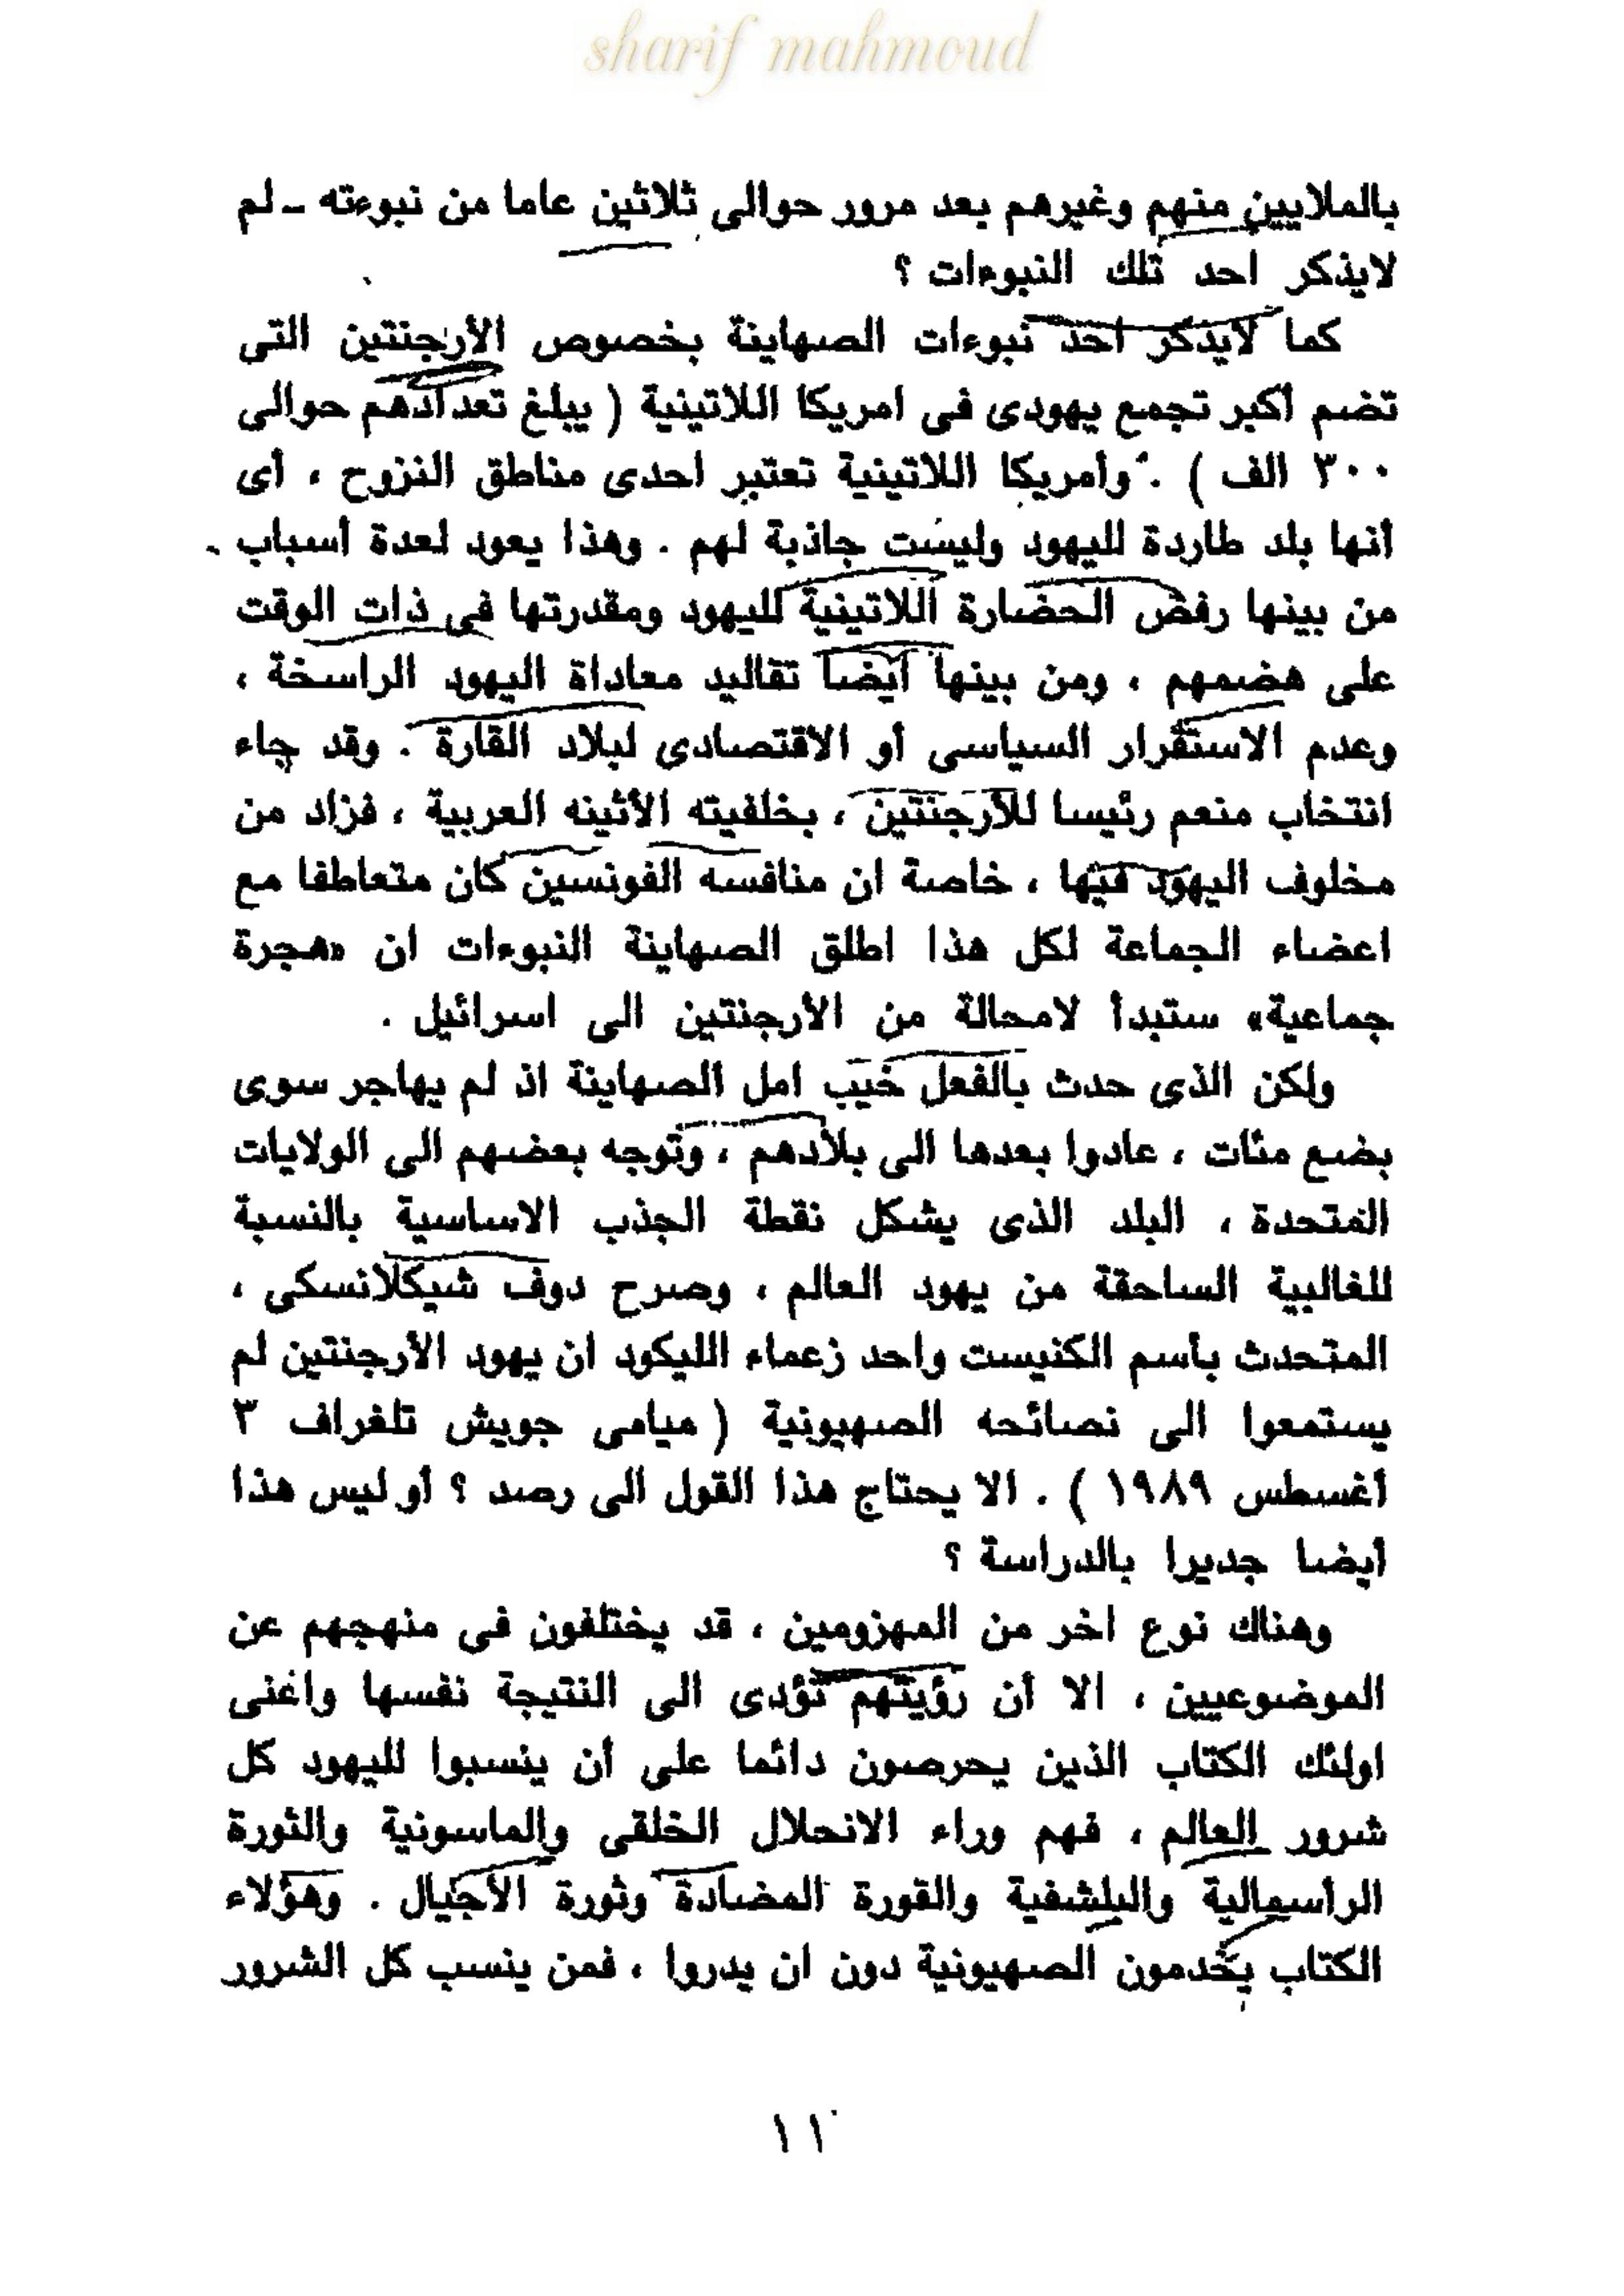 sharif mahmoud
بالملايين منهم وغيرهم بعد مرور حوالى ثلاثين عاما من نبوءته ـ لم
لايذكر احد تلك النبوءات ؟
كما لايذكر احد نبوءات الصهاينة بخصوص الأرجنتين التى
تضم أكبر تجمع يهودى فى امريكا اللاتينية ( يبلغ تعدادهم حوالى
٣٠٠ الف ) . وأمريكا اللاتينية تعتبر احدى مناطق النزوح ، أى
أنها بلد طاردة لليهود وليست جاذبة لهم . وهذا يعود لعدة أسباب
من بينها رفض الحضارة اللاتينية لليهود ومقدرتها فى ذات الوقت
على هضمهم ، ومن بينها أيضا تقاليد معاداة اليهود الراسخة ،
وعدم الاستقرار السياسى أو الاقتصادى لبلاد القارة . وقد جاء
انتخاب منعم رئيسا للأرجنتين ، بخلفيته الأثينه العربية ، فزاد من
مخلوف اليهود فيها ، خاصة ان منافسه الفونسين كان متعاطفا مع
اعضاء الجماعة لكل هذا اطلق الصهاينة النبوءات ان «هجرة
جماعية» ستبدأ لامحالة من الأرجنتين الى اسرائيل .
ولكن الذى حدث بالفعل خيب امل الصهاينة اذ لم يهاجر سوى
بضع مئات ، عادوا بعدها الى بلادهم ، وتوجه بعضهم الى الولايات
المتحدة ، البلد الذى يشكل نقطة الجذب الاساسية بالنسبة
للغالبية الساحقة من يهود العالم ، وصرح دوف شيكلانسكى ،
المتحدث بأسم الكنيست واحد زعماء الليكود ان يهود الأرجنتين لم
يستمعوا الى نصائحه الصهيونية ( ميامى جويش تلغراف ٣
أغسطس ١٩٨٩ ) . الا يحتاج هذا القول الى رصد ؟ أو ليس هذا
أيضا جديرا بالدراسة ؟
وهناك نوع اخر من المهزومين ، قد يختلفون فى منهجهم عن
الموضوعيين ، الا أن رؤيتهم تؤدى الى النتيجة نفسها واغنى
اولئك الكتاب الذين يحرصون دائما على أن ينسبوا لليهود كل
شرور العالم ، فهم وراء الانحلال الخلقى والماسونية والثورة
الرأسمالية والبلشفية والقورة المضادة وثورة الأجيال . وهؤلاء
الكتاب يخدمون الصهيونية دون ان يدروا ، فمن ينسب كل الشرور
١١